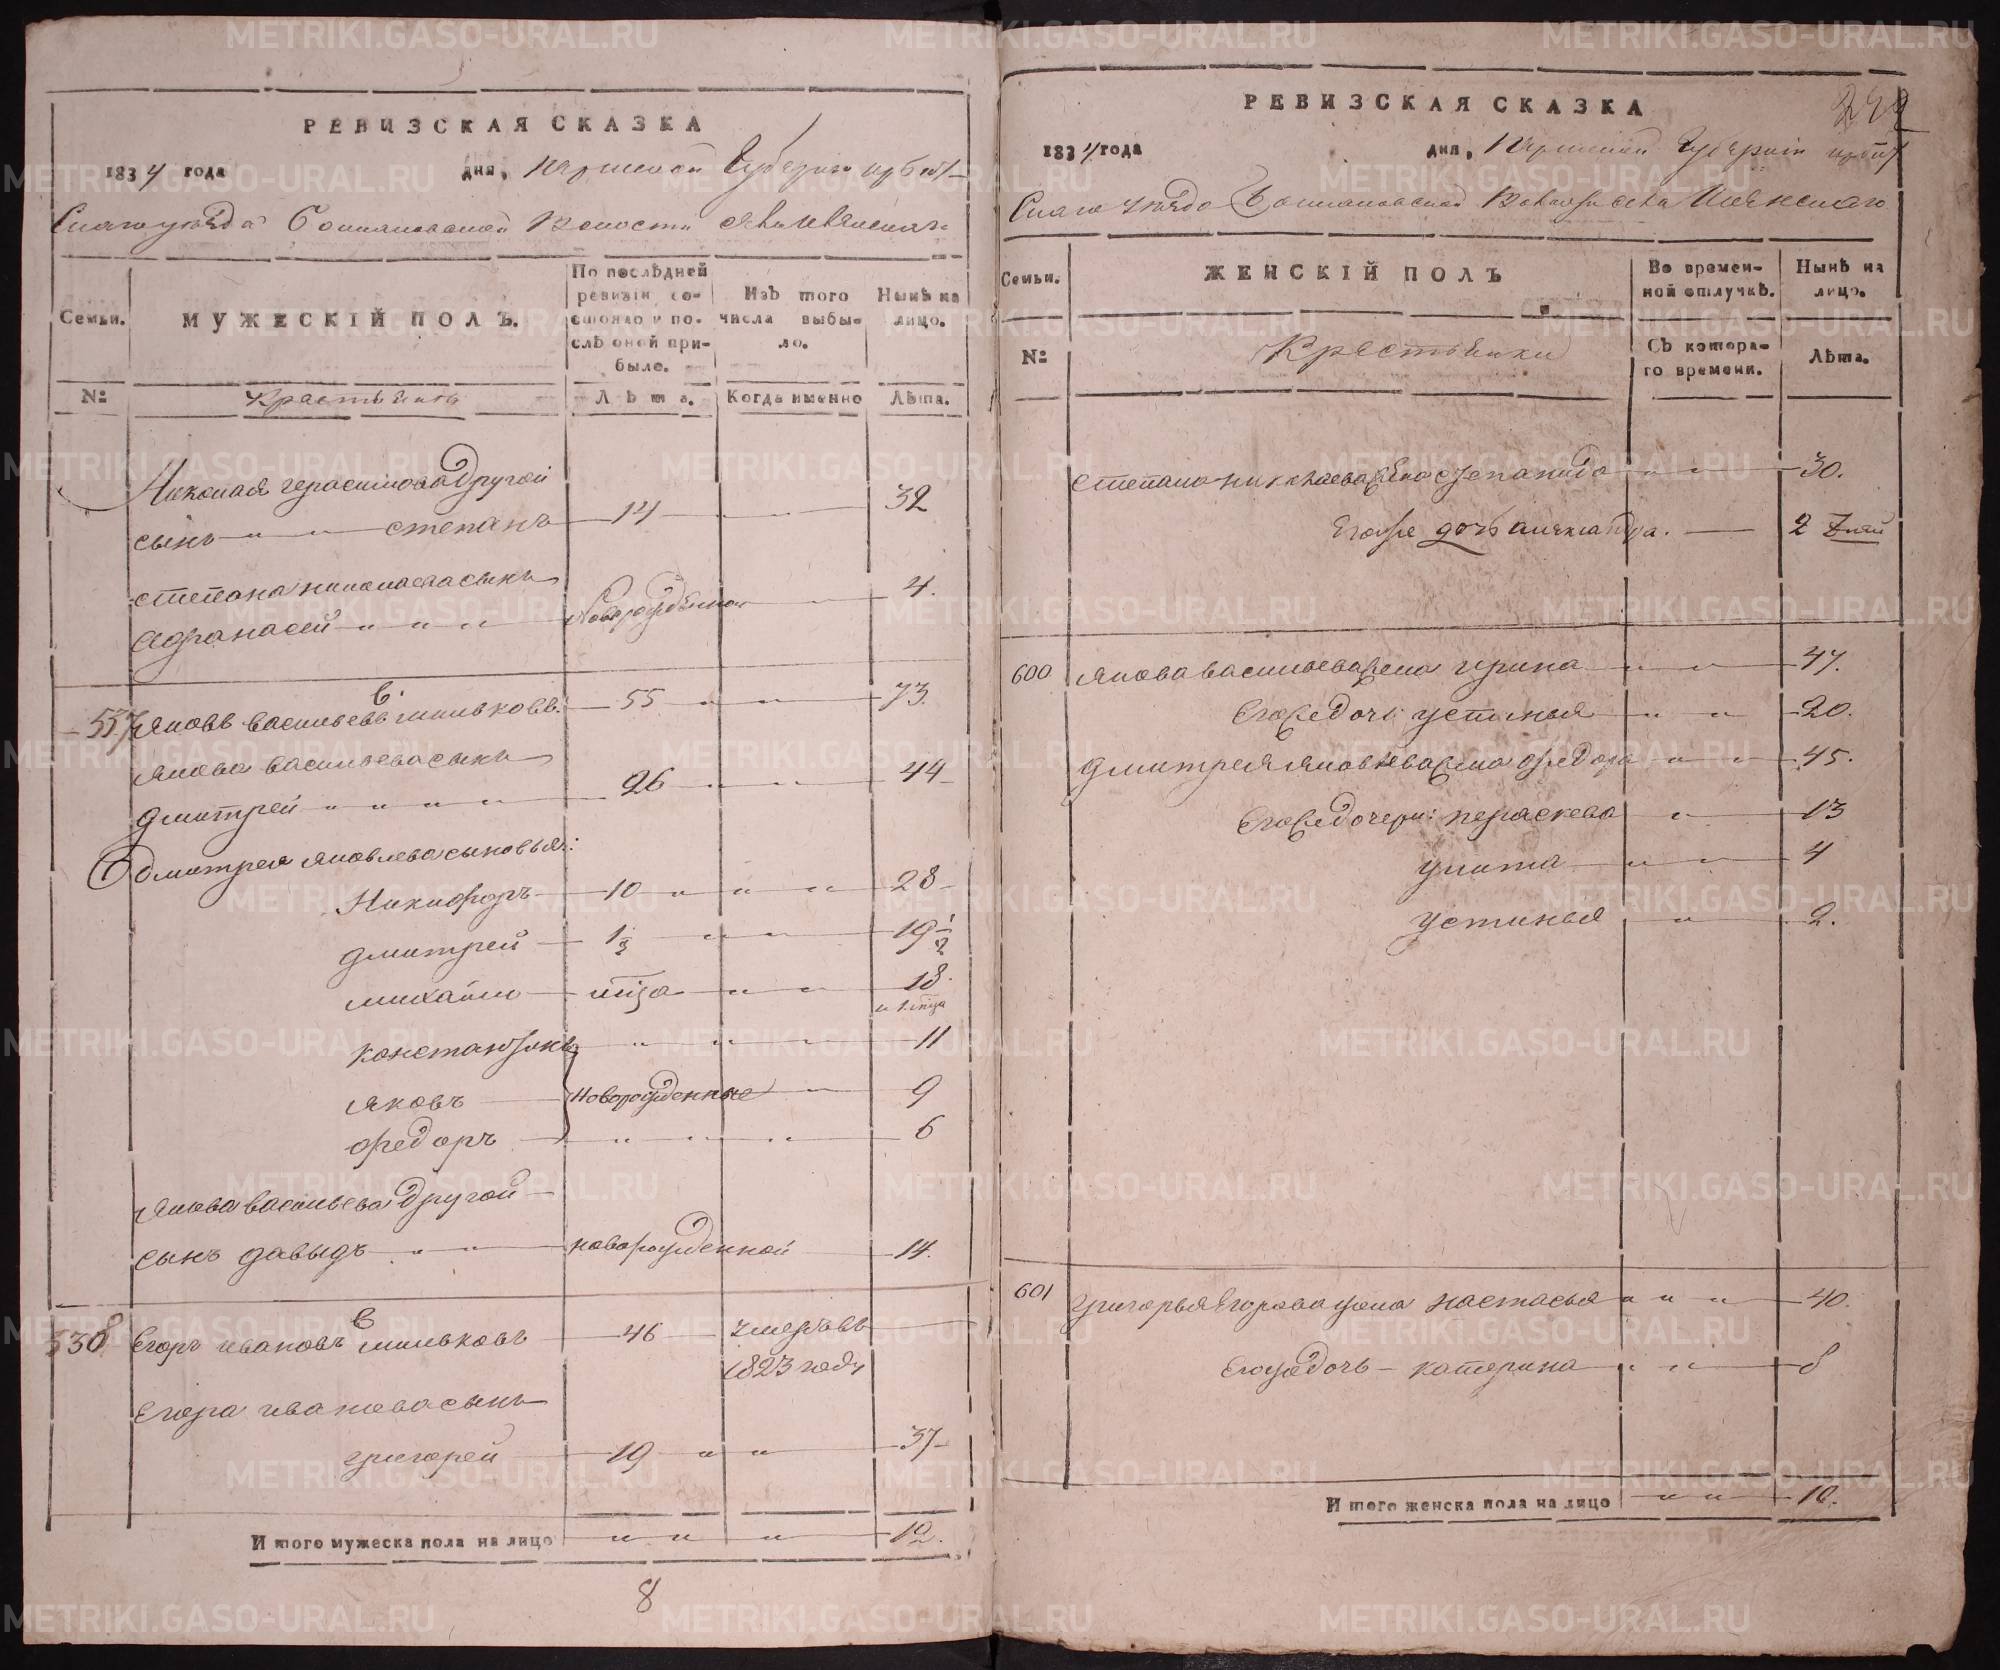 РЕВИЗСКАЯ СКАЗКА
1834 года дня, Пермской Губернии Ирбит-
скаго уѣзда Волости
Семьи. МУЖЕСКІЙ ПОЛЪ. По послѣдней ревизіи состояло и послѣ оной прибыло. Изъ того числа выбыло. Нынѣ на лицо.
№ Крестьяне Лѣта. Когда именно Лѣта.
Николая Герасимова другой
сынъ " " степанъ 14 " " 32
степана николаева сынъ
Афанасей " " " Новорожденной " 4.
в.
557 Яковъ васильевъ шильковъ. 55 " " 73.
Якова васильева сынъ
дмитрей " " " " 26 " " 44
дмитрея яковлева сыновья:
Никифоръ 10 " " " 28
дмитрей 1/3 " " 19 1/2
михайло " " 18
Констянтинъ " " " 11
яковъ новорожденные " 9
федоръ " " " " 6
Якова васильева другой
сынъ давыдъ " " новорожденной 14.
в
538 Егоръ ивановъ шильковъ 46 умеръ въ
1823 году
Егора иванова сынъ
григорей 19 " " 37
И того мужеска пола на лицо " " " 12.
8
РЕВИЗСКАЯ СКАЗКА
1834 года дня, Пермской Губерніи Ирбит
скаго уѣзда Волости села
Семьи. ЖЕНСКІЙ ПОЛЪ Во временной отлучкѣ. Нынѣ на лицо.
№ Крестьянки Съ котораго времени. Лѣта.
степана николаева жена степанида " " 30.
Его же дочь александра. 2 дней
600 Якова васильева жена ирина " " 47.
Его же дочь устинья " " 20.
дмитрея яковлева жена федора " " 45.
Его же дочери: пераскева " 13
улита " " 4
устинья " 2.
601 григорья егорова жена настасья " " " 40.
Его же дочь - катерина " " 8
И того женска пола на лицо " " 10.
METRIKI.GASO-URAL.RU